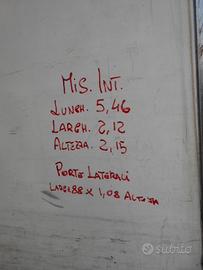 Mis. Int.
Lungh. 5,46
Largh. 2,12
Altezza. 2,15
Porte Laterali
Largh. 88 x 1,08 Altezza
subito